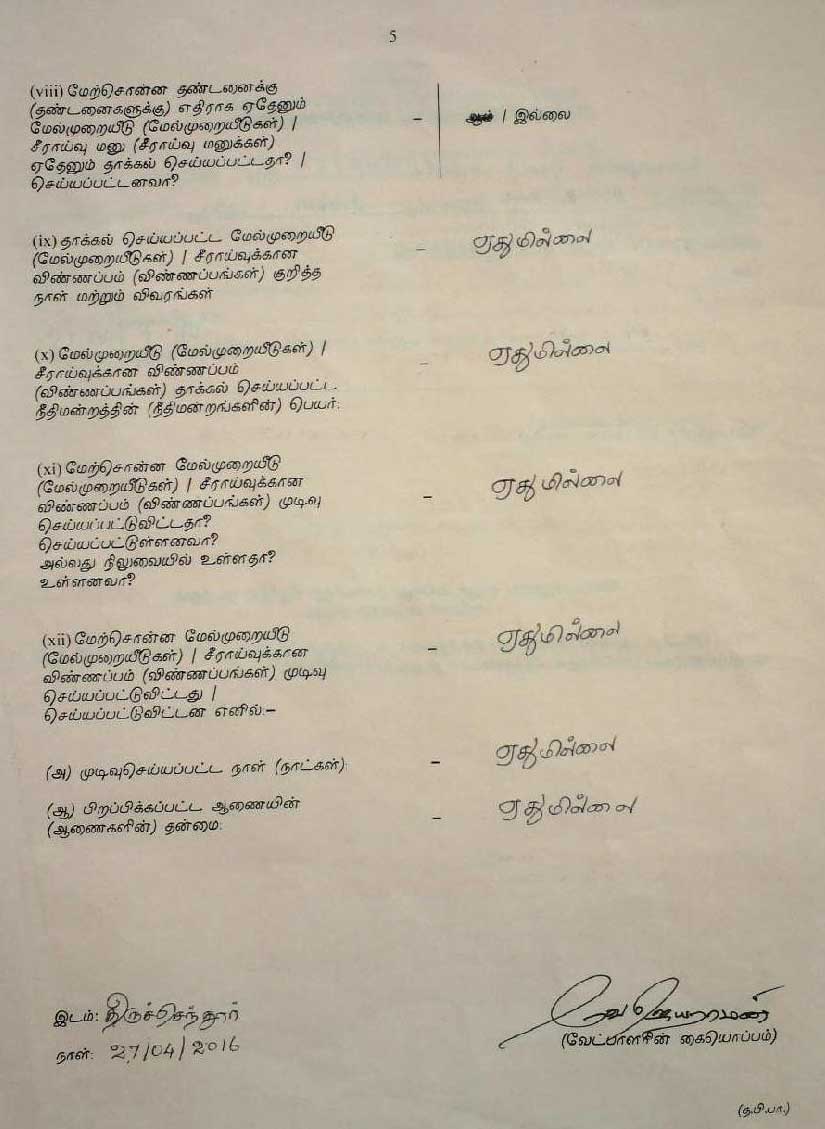 5
(viii) மேற்சொன்ன தண்டனைக்கு
(தண்டனைகளுக்கு) எதிராக ஏதேனும்
மேல்முறையீடு (மேல்முறையீடுகள்) |
சீராய்வு மனு (சீராய்வு மனுக்கள்)
ஏதேனும் தாக்கல் செய்யப்பட்டதா? |
செய்யப்பட்டனவா?
– ஆம் | இல்லை
(ix) தாக்கல் செய்யப்பட்ட மேல்முறையீடு
(மேல்முறையீடுகள்) | சீராய்வுக்கான
விண்ணப்பம் (விண்ணப்பங்கள்) குறித்த
நாள் மற்றும் விவரங்கள்
– ஏதுமில்லை
(x) மேல்முறையீடு (மேல்முறையீடுகள்) |
சீராய்வுக்கான விண்ணப்பம்
(விண்ணப்பங்கள்) தாக்கல் செய்யப்பட்ட
நீதிமன்றத்தின் (நீதிமன்றங்களின்) பெயர்:
– ஏதுமில்லை
(xi) மேற்சொன்ன மேல்முறையீடு
(மேல்முறையீடுகள்) | சீராய்வுக்கான
விண்ணப்பம் (விண்ணப்பங்கள்) முடிவு
செய்யப்பட்டுவிட்டதா?
செய்யப்பட்டுள்ளனவா?
அல்லது நிலுவையில் உள்ளதா?
உள்ளனவா?
– ஏதுமில்லை
(xii) மேற்சொன்ன மேல்முறையீடு
(மேல்முறையீடுகள்) | சீராய்வுக்கான
விண்ணப்பம் (விண்ணப்பங்கள்) முடிவு
செய்யப்பட்டுவிட்டது |
செய்யப்பட்டுவிட்டன எனில்:–
– ஏதுமில்லை
(அ) முடிவுசெய்யப்பட்ட நாள் (நாட்கள்): – ஏதுமில்லை
(ஆ) பிறப்பிக்கப்பட்ட ஆணையின்
(ஆணைகளின்) தன்மை:
– ஏதுமில்லை
இடம்: திருச்செந்தூர்
நாள்: 27/04/2016
ஜெயராமன்
(வேட்பாளரின் கையொப்பம்)
(த.பி.பா.)